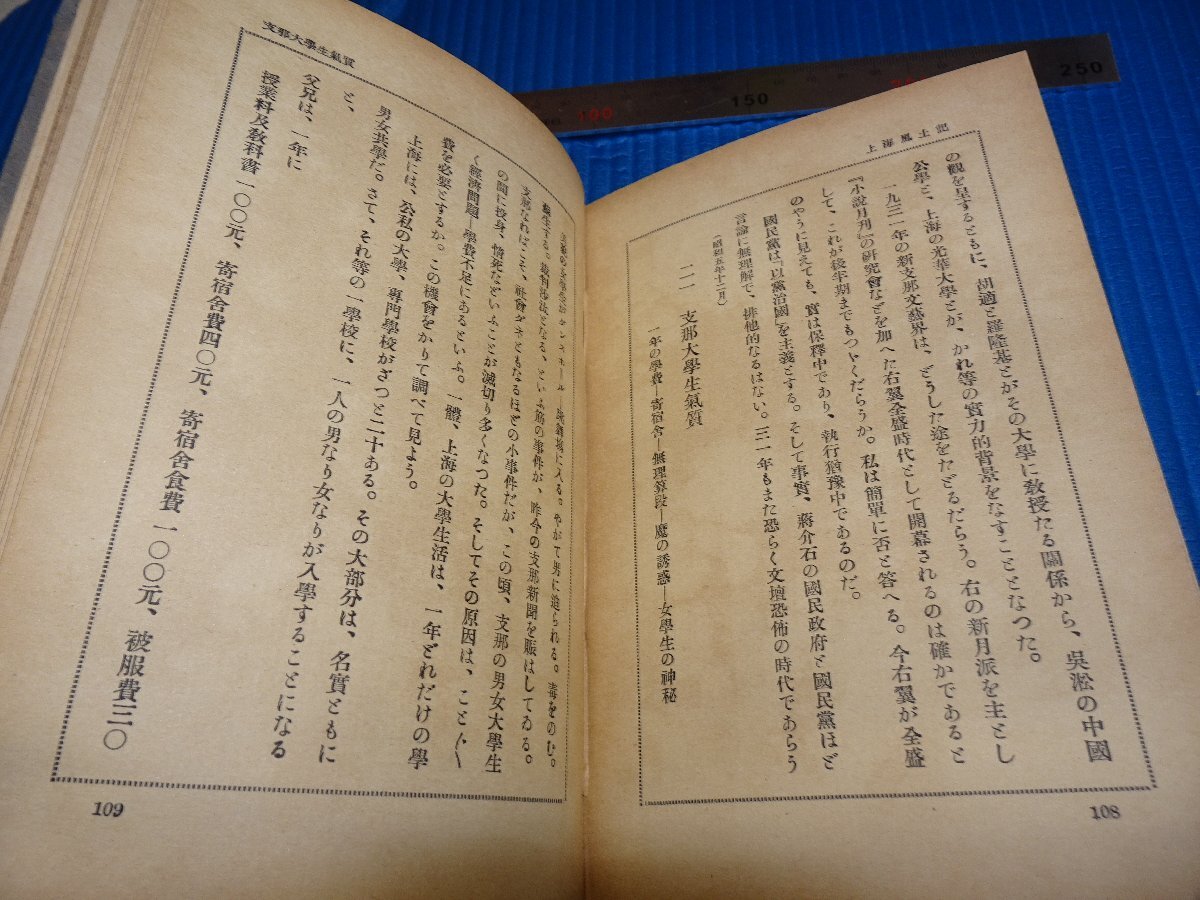 上海風土記
の觀を呈するともに、胡適と羅隆基とがその大學に敎授たる關係から、吳淞の中國
公學と、上海の光華大學とが、かれ等の實力的背景をなすこととなつた。
一九三一年の新支那文藝界は、どうした途をたどるだらう。右の新月派を主とし
『小說月刊』の研究會などを加へた右翼全盛時代として開幕されるのは確かであると
して、これが後半期までもつゞくだらうか。私は簡單に否と答へる。今右翼が全盛
のやうに見えても、實は保釋中であり、執行猶豫中であるのだ。
國民黨は「以黨治國」を主義とする。そして事實、蔣介石の國民政府と國民黨ほど
言論に無理解で、排他的なるはない。三一年もまた恐らく文壇恐怖の時代であらう
(昭和五年十二月)
二一 支那大學生氣質
一年の學費—寄宿舍—無理算段—魔の誘惑—女學生の神秘
108
支那大學生氣質
ホール—跳舞場に入る。やがて男に迫られる。毒をのむ。
蘇生する。裁判沙汰となる、といふ筋の事件が、昨今の支那新聞を賑はしてゐる。
支那なればこそ、社會がそともなるほどの小事件だが、この頃、支那の男女大學生
の間に投身、憤死などいふことが滅切り多くなつた。そしてその原因は、ことごと
く經濟問題、學費不足にあるといふ。一體、上海の大學生活は、一年どれだけの學
費を必要とするか。この機會をかりて調べて見よう。
上海には、公私の大學、專門學校がざつと二十ある。その大部分は、名實ともに
男女共學だ。さて、それ等の一學校に、一人の男なり女なりが入學することになる
と、
父兄は、一年に
授業料及敎科書一〇〇元、寄宿舍費四〇元、寄宿舍食費一〇〇元、被服費三〇
109
100
150
250